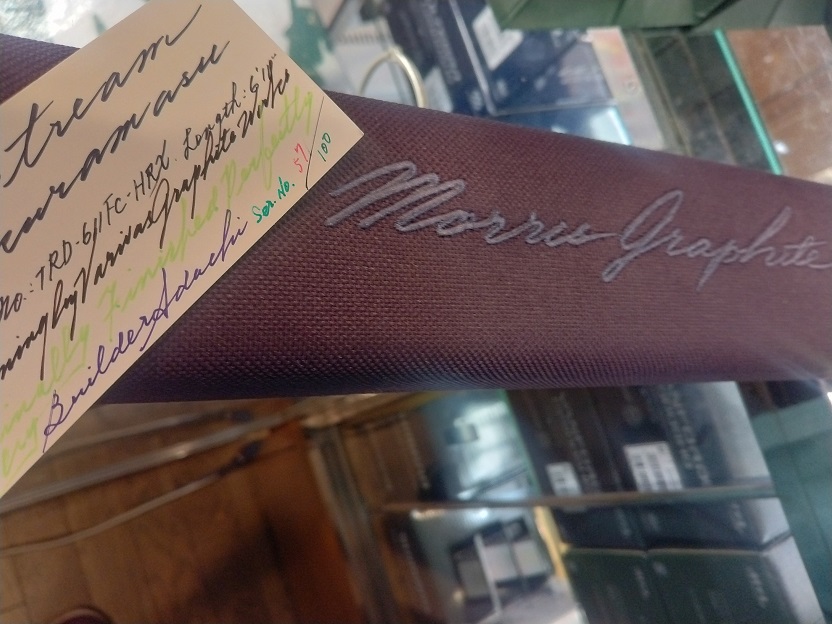 tream
uramasu
No.: TRD-611FC-HRX. Length: 6'10"
ning by Varivas Graphite Works
Finished Perfectly
Builder Adachi
Ser. No. 57/100
Morris Graphite